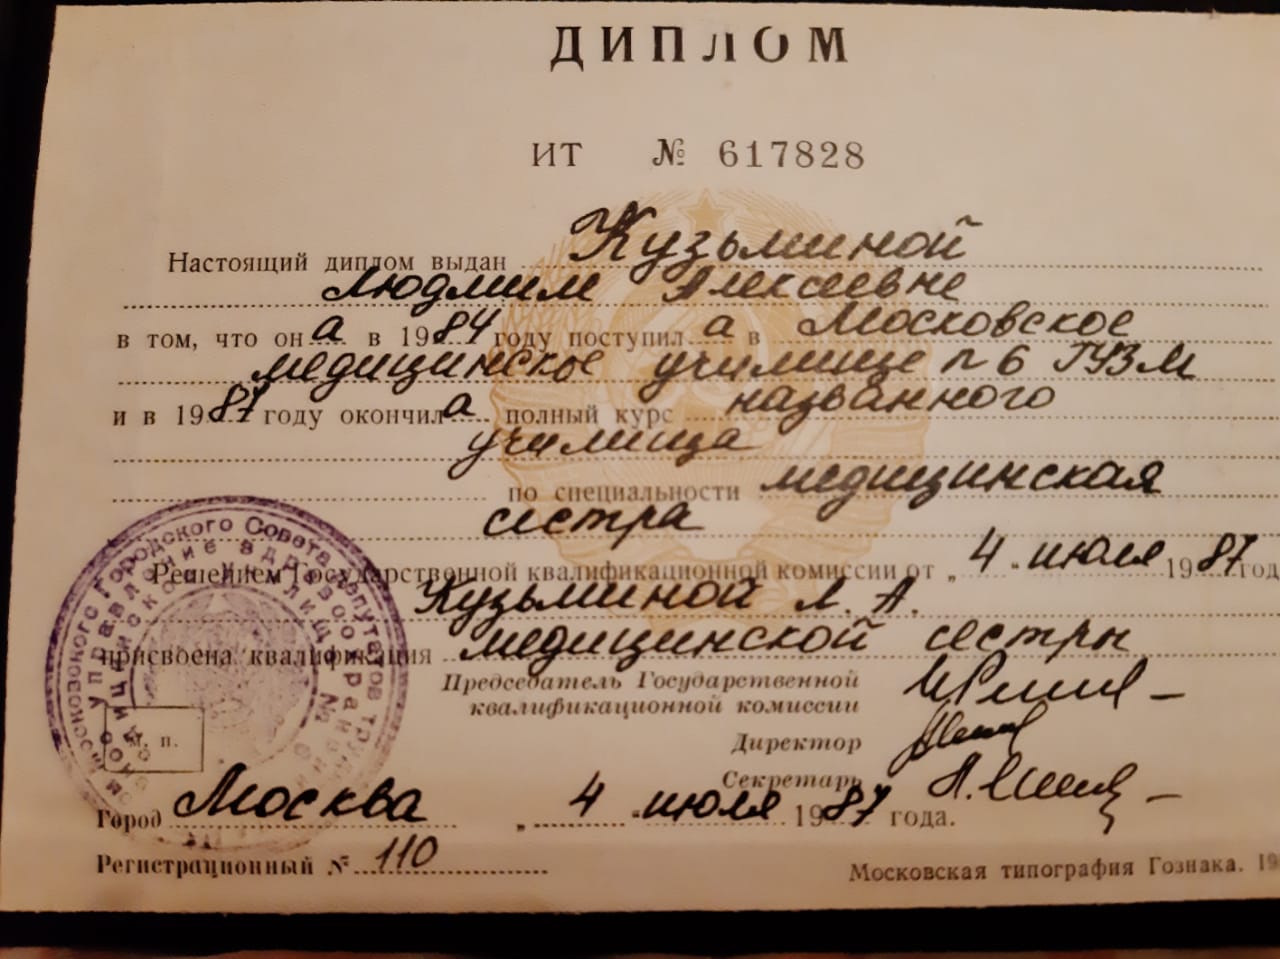 ДИПЛОМ
ИТ № 617828
Настоящий диплом выдан Кузьминой
Людмиле Алексеевне
в том, что он а в 1984 году поступил а в Московское
медицинское училище n 6 ГУЗМ
и в 1987 году окончил а полный курс названного
училища
по специальности медицинская
сестра
Решением Государственной квалификационной комиссии от „ 4 " июля 1987 год
Кузьминой Л. А.
присвоена квалификация медицинской сестры
Председатель Государственной
квалификационной комиссии
Директор
Секретарь
м. п.
Город Москва „ 4 " июля 1987 года.
Регистрационный № 110
Московская типография Гознака. 19